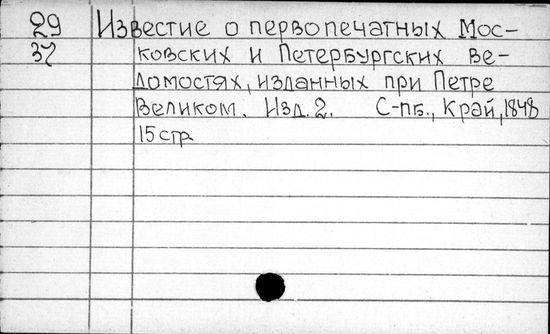 29 Известие о первопечатных Мос-
37 ковских и Петербургских Ве-
домостях, изданных при Петре
Великом. Изд. 2. С-пб., Край, 1848
15 стр